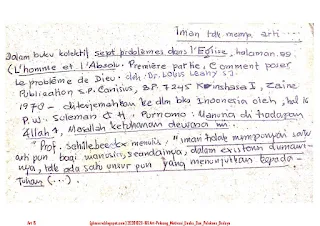 Iman tdk mempy arti ....
Dalam buku kolektif sept problèmes dans l'Eglise, halaman 99.
(L'homme et l'Absolu. Première partie, Comment poser
le problème de Dieu. oleh: Dr. Louis Leahy SJ.
Publication S.P. Canisius, B.P. 7245 Kinshasa I, Zaire
1970 - diterjemahkan ke dlm bhs Indonesia oleh,
P.W. Soleman & H. Purnomo: Manusia di hadapan
Allah 4, Masalah ketuhanan dewasa ini.
"Prof. Schillebeeckx menulis, "iman tidak mempunyai satu
arti pun bagi manusia, seandainya, dalam existensi duniawi-
nya, tdk ada satu unsur pun yang menunjukkan kepada
Tuhan (...).